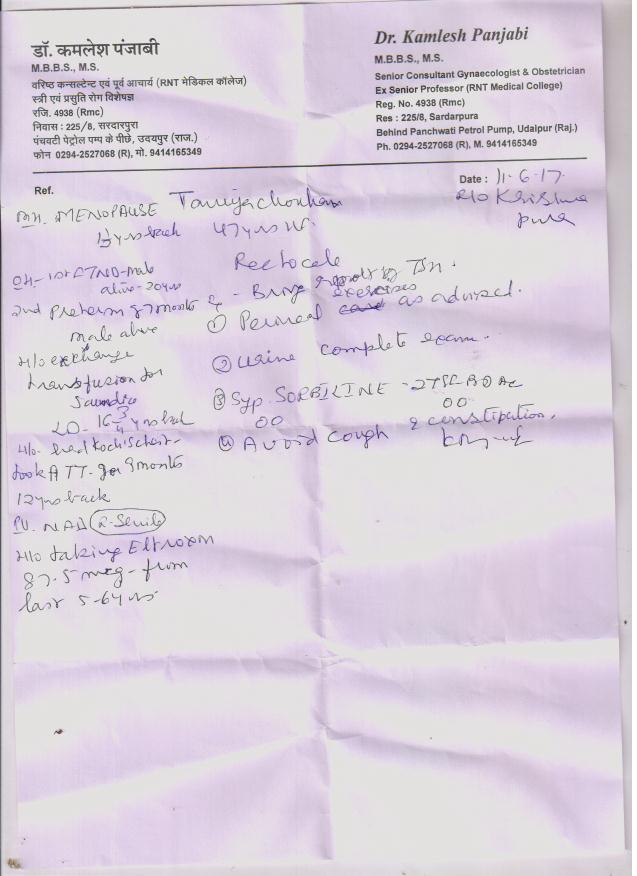 डॉ. कमलेश पंजाबी
M.B.B.S., M.S.
वरिष्ठ कन्सल्टेन्ट एवं पूर्व आचार्य (RNT मेडिकल कॉलेज)
स्त्री एवं प्रसुति रोग विशेषज्ञ
रजि. 4938 (Rmc)
निवास : 225/8, सरदारपुरा
पंचवटी पेट्रोल पम्प के पीछे, उदयपुर (राज.)
फोन 0294-2527068 (R), मो. 9414165349
Dr. Kamlesh Panjabi
M.B.B.S., M.S.
Senior Consultant Gynaecologist & Obstetrician
Ex Senior Professor (RNT Medical College)
Reg. No. 4938 (Rmc)
Res : 225/8, Sardarpura
Behind Panchwati Petrol Pump, Udaipur (Raj.)
Ph. 0294-2527068 (R), M. 9414165349
Ref.
Date : 11-6-17
R/O Krishna
pura
MH. MENOPAUSE
yrs back
47 yrs
OH- 1st FTND-male
alive-20yrs
2nd Preterm 7 months
male alive
H/O exchange
transfusion for
Jaundice
LD-
H/o- had Koch's
took ATT- for 9 months
12 yrs back
PV. NAD
H/O taking Eltroxin
87.5 mcg- from
last 5-6 yrs
Rectocele
- Bring report
① Perineal exercises as advised.
② Urine complete exam.
③ Syp. SORBILINE - 2TSF BD AC
④ Avoid cough & constipation.